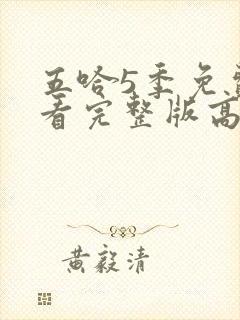 五哈5季免费
看完整版高
黄毅清